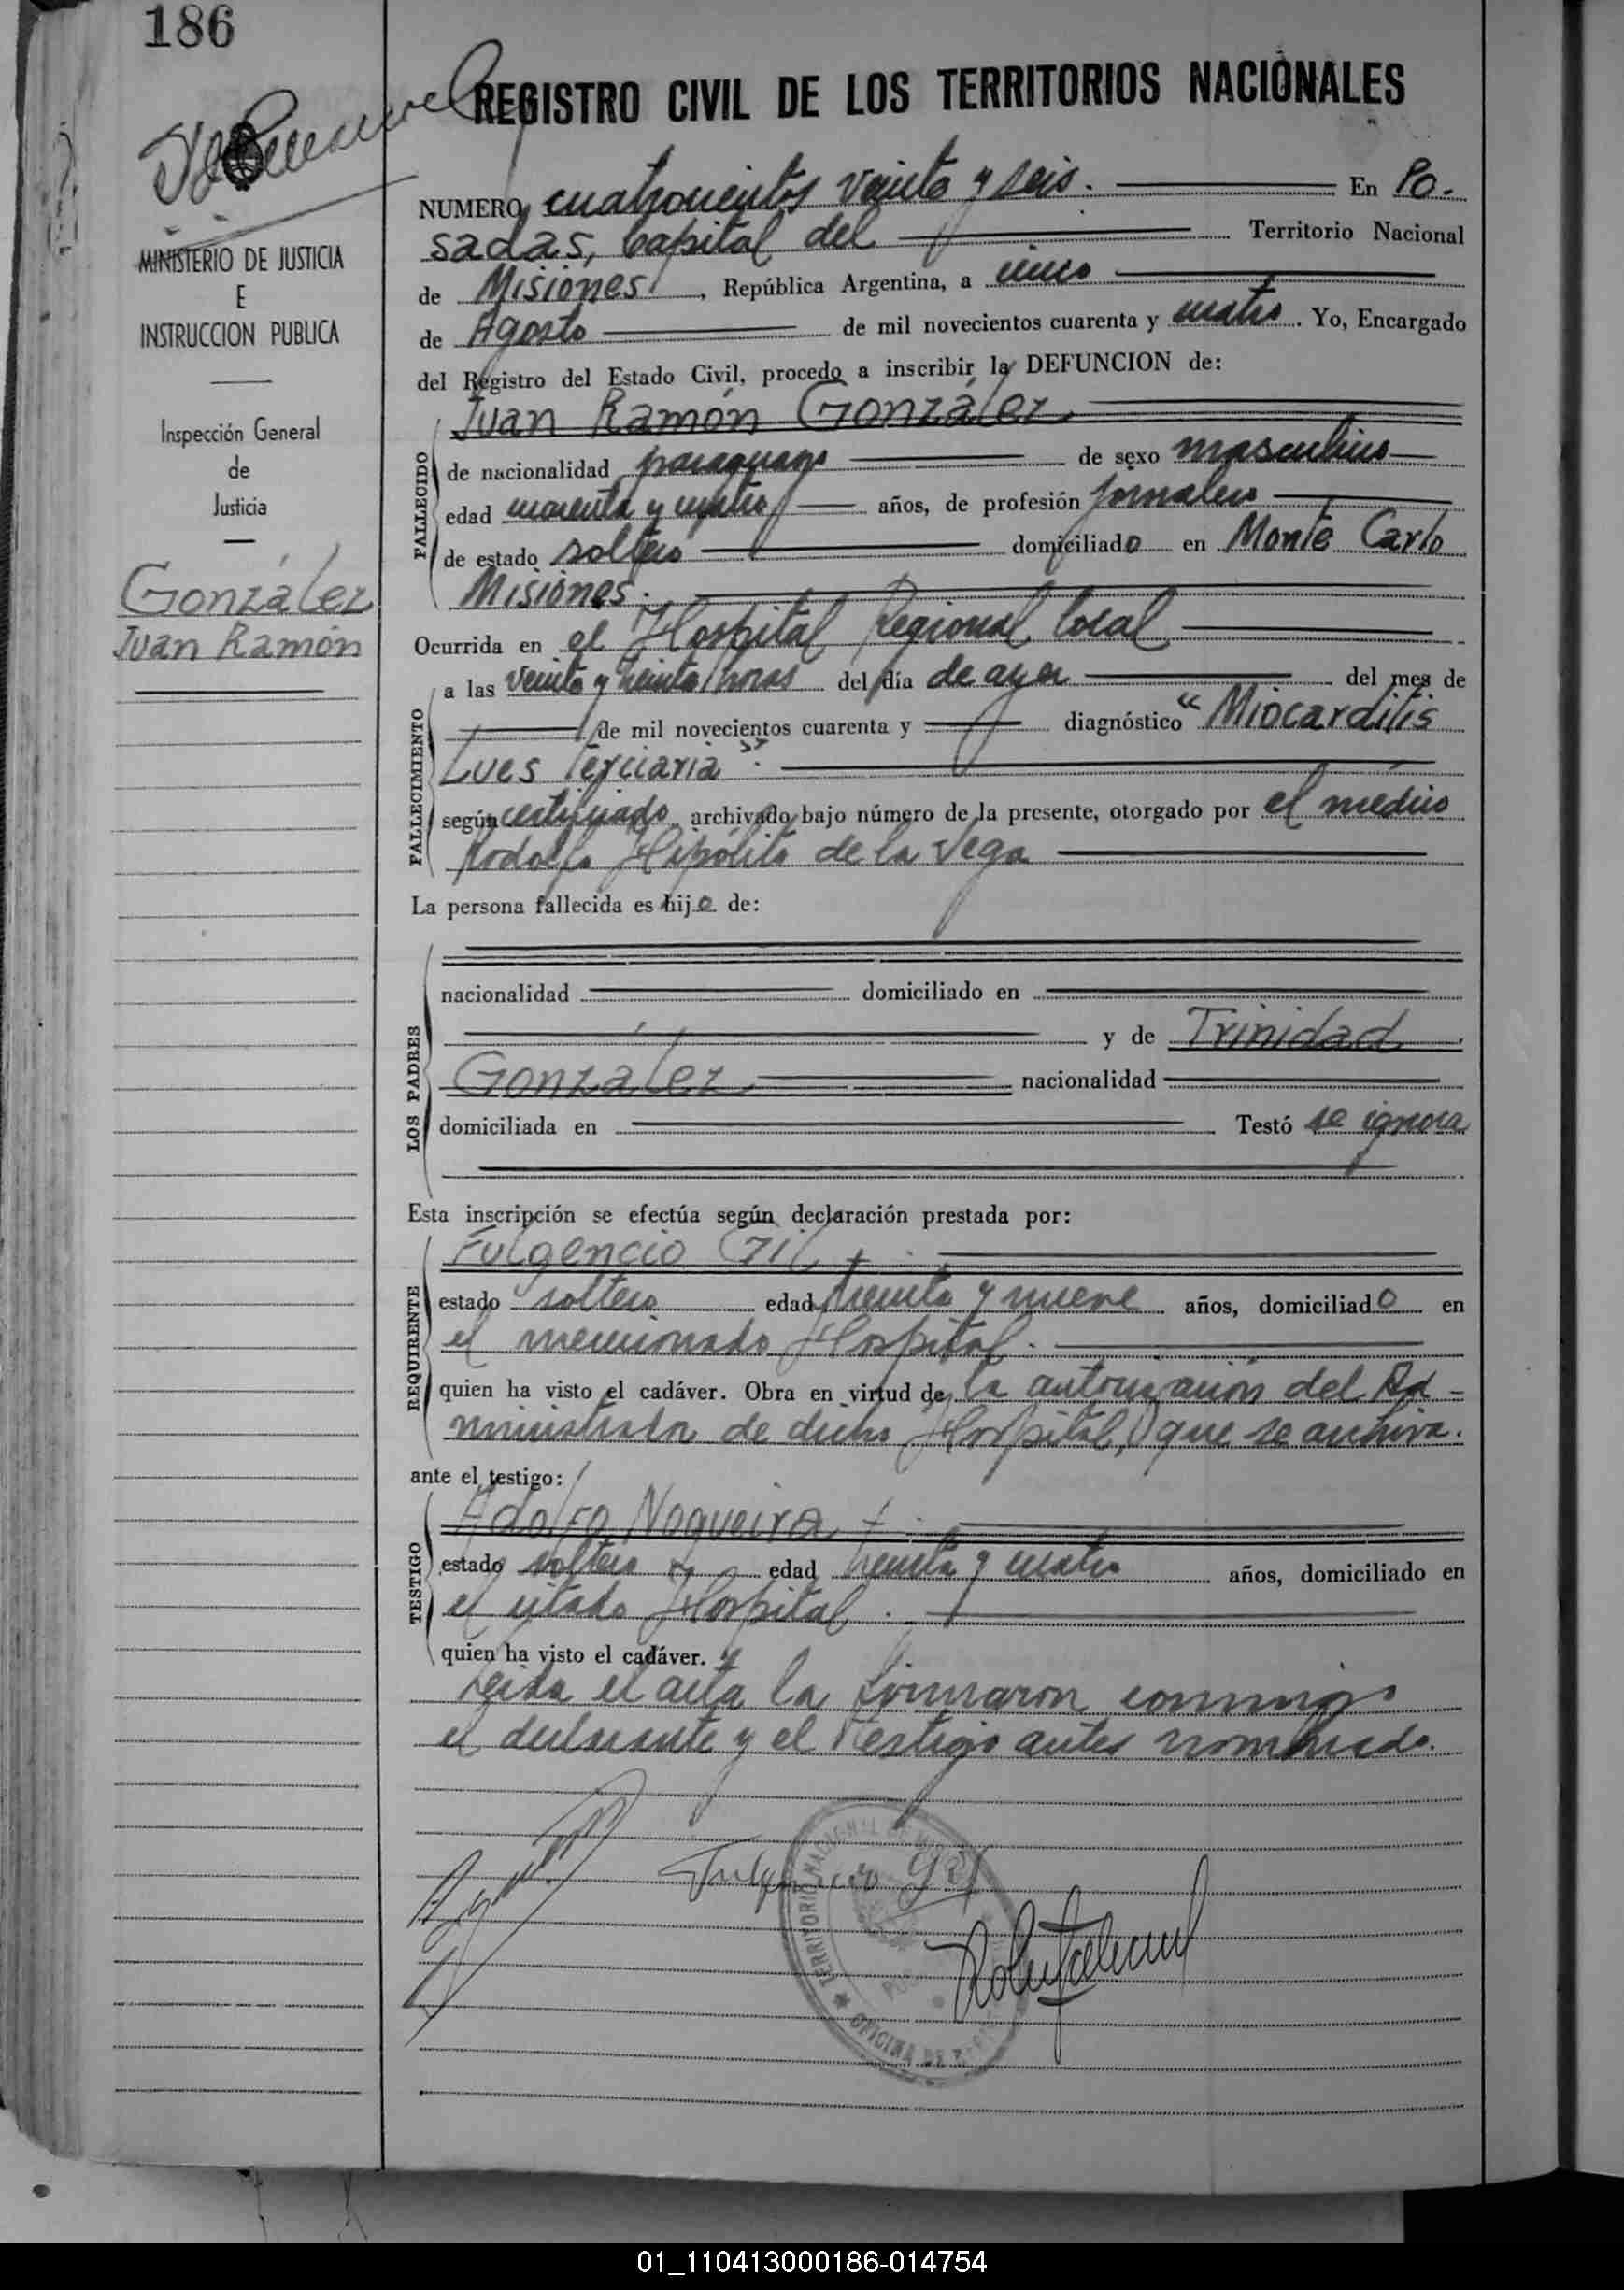 186
REGISTRO CIVIL DE LOS TERRITORIOS NACIONALES
MINISTERIO DE JUSTICIA
E
INSTRUCCION PUBLICA
Inspección General
de
Justicia
González
Juan Ramón
NUMERO cuatrocientos veinte y seis. En Po-
sadas, Capital del Territorio Nacional
de Misiones, República Argentina, a cinco
de Agosto de mil novecientos cuarenta y cuatro. Yo, Encargado
del Registro del Estado Civil, procedo a inscribir la DEFUNCION de:
Juan Ramón González
FALLECIDO
de nacionalidad paraguayo de sexo masculino
edad cuarenta y cuatro años, de profesión jornalero
de estado soltero domiciliado en Monte Carlo
Misiones.
Ocurrida en el Hospital Regional local
FALLECIMIENTO
a las veinte y treinta horas del día de ayer del mes de
de mil novecientos cuarenta y diagnóstico "Miocarditis
Lues Terciaria".
según certificado archivado bajo número de la presente, otorgado por el médico
Rodolfo Hipólito de la Vega
La persona fallecida es hijo de:
LOS PADRES
nacionalidad domiciliado en
y de Trinidad
González nacionalidad
domiciliada en Testó se ignora
Esta inscripción se efectúa según declaración prestada por:
REQUIRENTE
Fulgencio Gil
estado soltero edad treinta y nueve años, domiciliado en
el mencionado Hospital.
quien ha visto el cadáver. Obra en virtud de la autorización del Ad-
ministrador de dicho Hospital, que se archiva.
ante el testigo:
TESTIGO
Adolfo Nogueira
estado soltero edad treinta y cuatro años, domiciliado en
el citado Hospital.
quien ha visto el cadáver. y
leida el acta la firmaron conmigo
el declarante y el testigo antes nombrado.
Fulgencio Gil
TERRITORIO NACIONAL
OFICINA DE
01_110413000186-014754